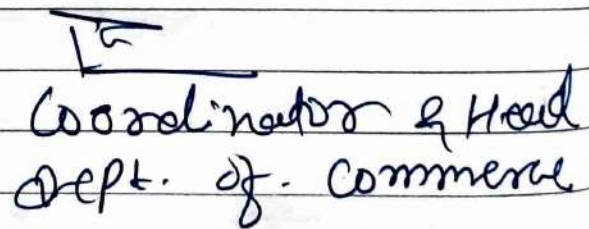 Coordinator & Head
Dept. of. Commerce